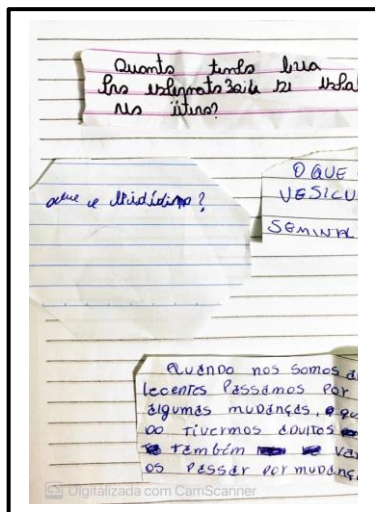 Quanto tempo leva
Pro espermatozoide se
no útero?
oque é Epidídimo?
O QUE
VESICU
SEMINAL
QUANDO NOS SOMOS a
lecentes PASSAMOS POR
algumas mudanças, e qu
DO TIVERMOS adultos
também va
os PASSAR por mudanç
Digitalizada com CamScanner